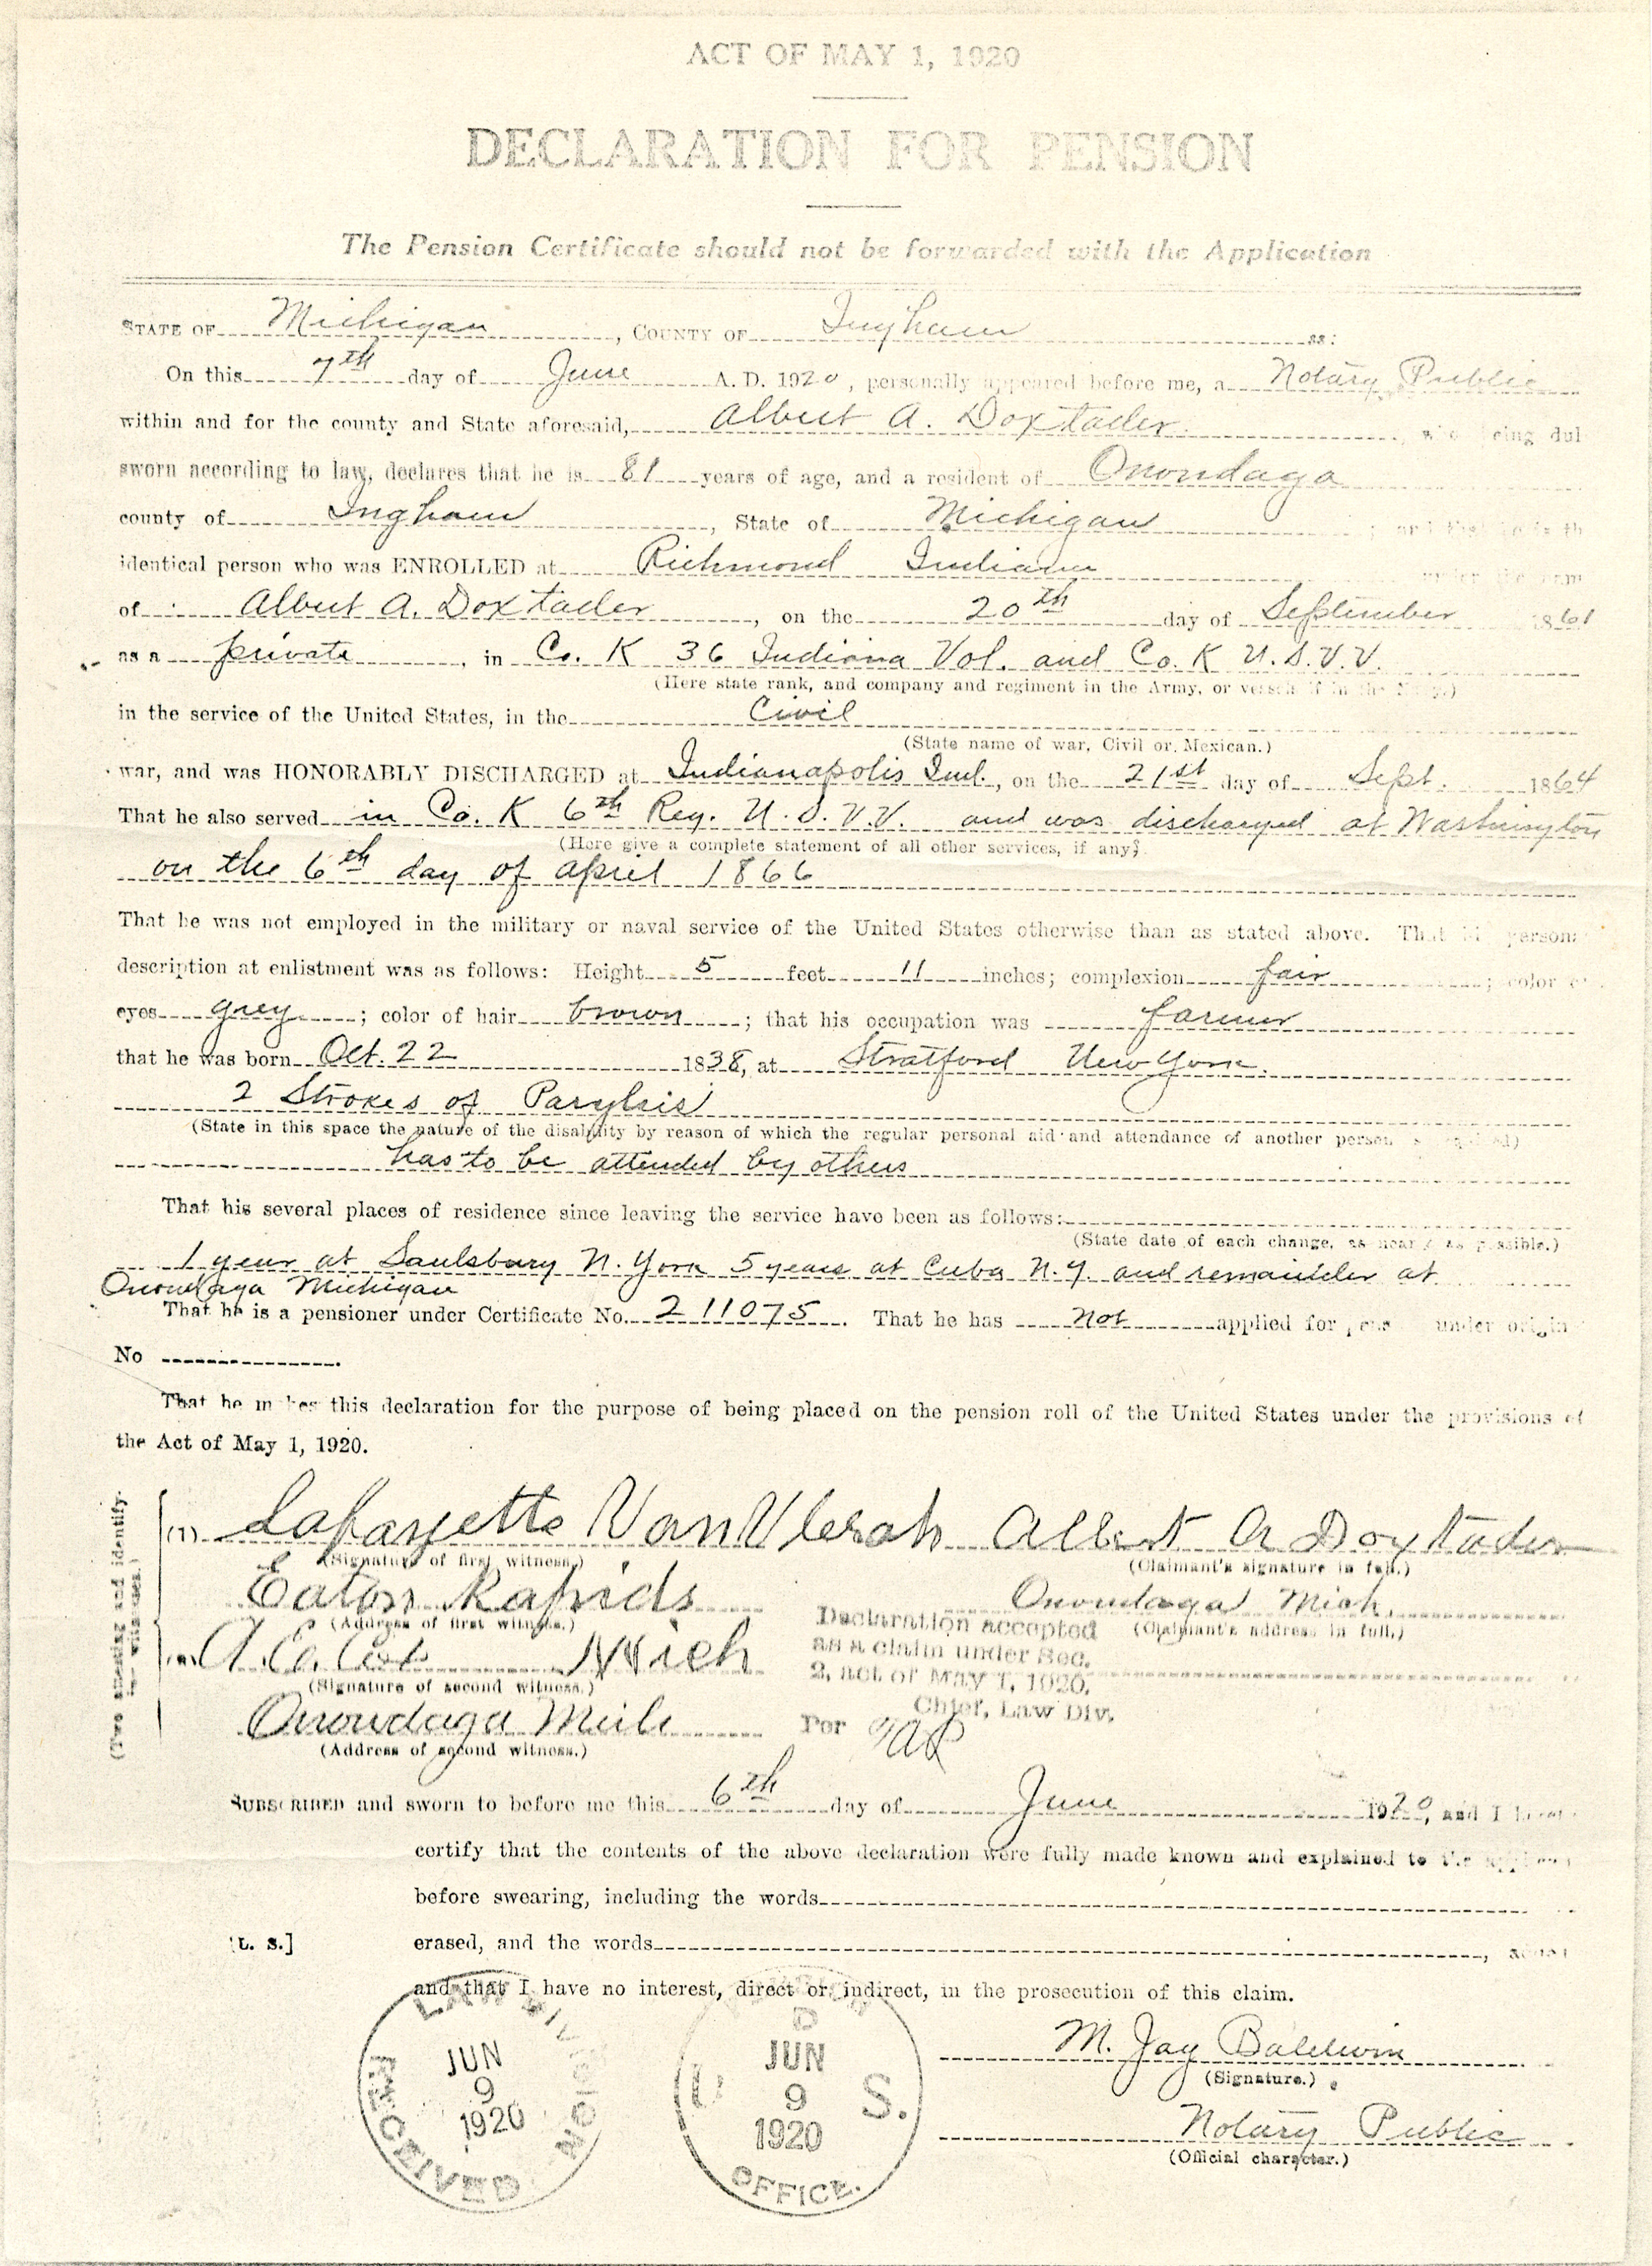 ACT OF MAY 1, 1920
DECLARATION FOR PENSION
The Pension Certificate should not be forwarded with the Application
STATE OF Michigan, COUNTY OF Ingham ss:
On this 7th day of June A. D. 1920, personally appeared before me, a Notary Public
within and for the county and State aforesaid, Albert A. Doxtader, who being dul
sworn according to law, declares that he is 81 years of age, and a resident of Onondaga
county of Ingham, State of Michigan; and that he is th
identical person who was ENROLLED at Richmond Indiana under the nam
of Albert A. Doxtader, on the 20th day of September 1861
as a private, in Co. K 36 Indiana Vol. and Co. K U.S.V.V.
(Here state rank, and company and regiment in the Army, or vessel if in the Navy.)
in the service of the United States, in the Civil
(State name of war, Civil or Mexican.)
war, and was HONORABLY DISCHARGED at Indianapolis Ind., on the 21st day of Sept. 1864
That he also served in Co. K 6th Reg. U.S.V.V. and was discharged at Washington
(Here give a complete statement of all other services, if any)
on the 6th day of April 1866
That he was not employed in the military or naval service of the United States otherwise than as stated above. That his person
description at enlistment was as follows: Height 5 feet 11 inches; complexion fair; color o
eyes grey; color of hair brown; that his occupation was farmer
that he was born Oct. 22 1838, at Stratford New York.
2 Strokes of Parylsis
(State in this space the nature of the disability by reason of which the regular personal aid and attendance of another person is required)
has to be attended by others
That his several places of residence since leaving the service have been as follows:
(State date of each change, as nearly as possible.)
1 year at Saulsbury N. York 5 years at Cuba N.Y. and remainder at
Onondaga Michigan
That he is a pensioner under Certificate No. 211075. That he has not applied for under origin
No
That he makes this declaration for the purpose of being placed on the pension roll of the United States under the provisions of
the Act of May 1, 1920.
(1) Lafayette Albert A Doxtader
(Signature of first witness.) (Claimant's signature in full.)
Eaton Rapids Onondaga Mich.
(Address of first witness.) (Claimant's address in full.)
Declaration accepted
as a claim under Sec.
2, act of MAY 1, 1920.
Chief, Law Div.
Per
Mich
(Signature of second witness.)
Onondaga Mich
(Address of second witness.)
SUBSCRIBED and sworn to before me this 6th day of June 1920, and I
certify that the contents of the above declaration were fully made known and explained to the
before swearing, including the words
[L. S.] erased, and the words
and that I have no interest, direct or indirect, in the prosecution of this claim.
LAW DIVISION
JUN
9
1920
RECEIVED
JUN
9
1920
U. S.
OFFICE.
M. Jay Baldwin
(Signature.)
Notary Public
(Official character.)